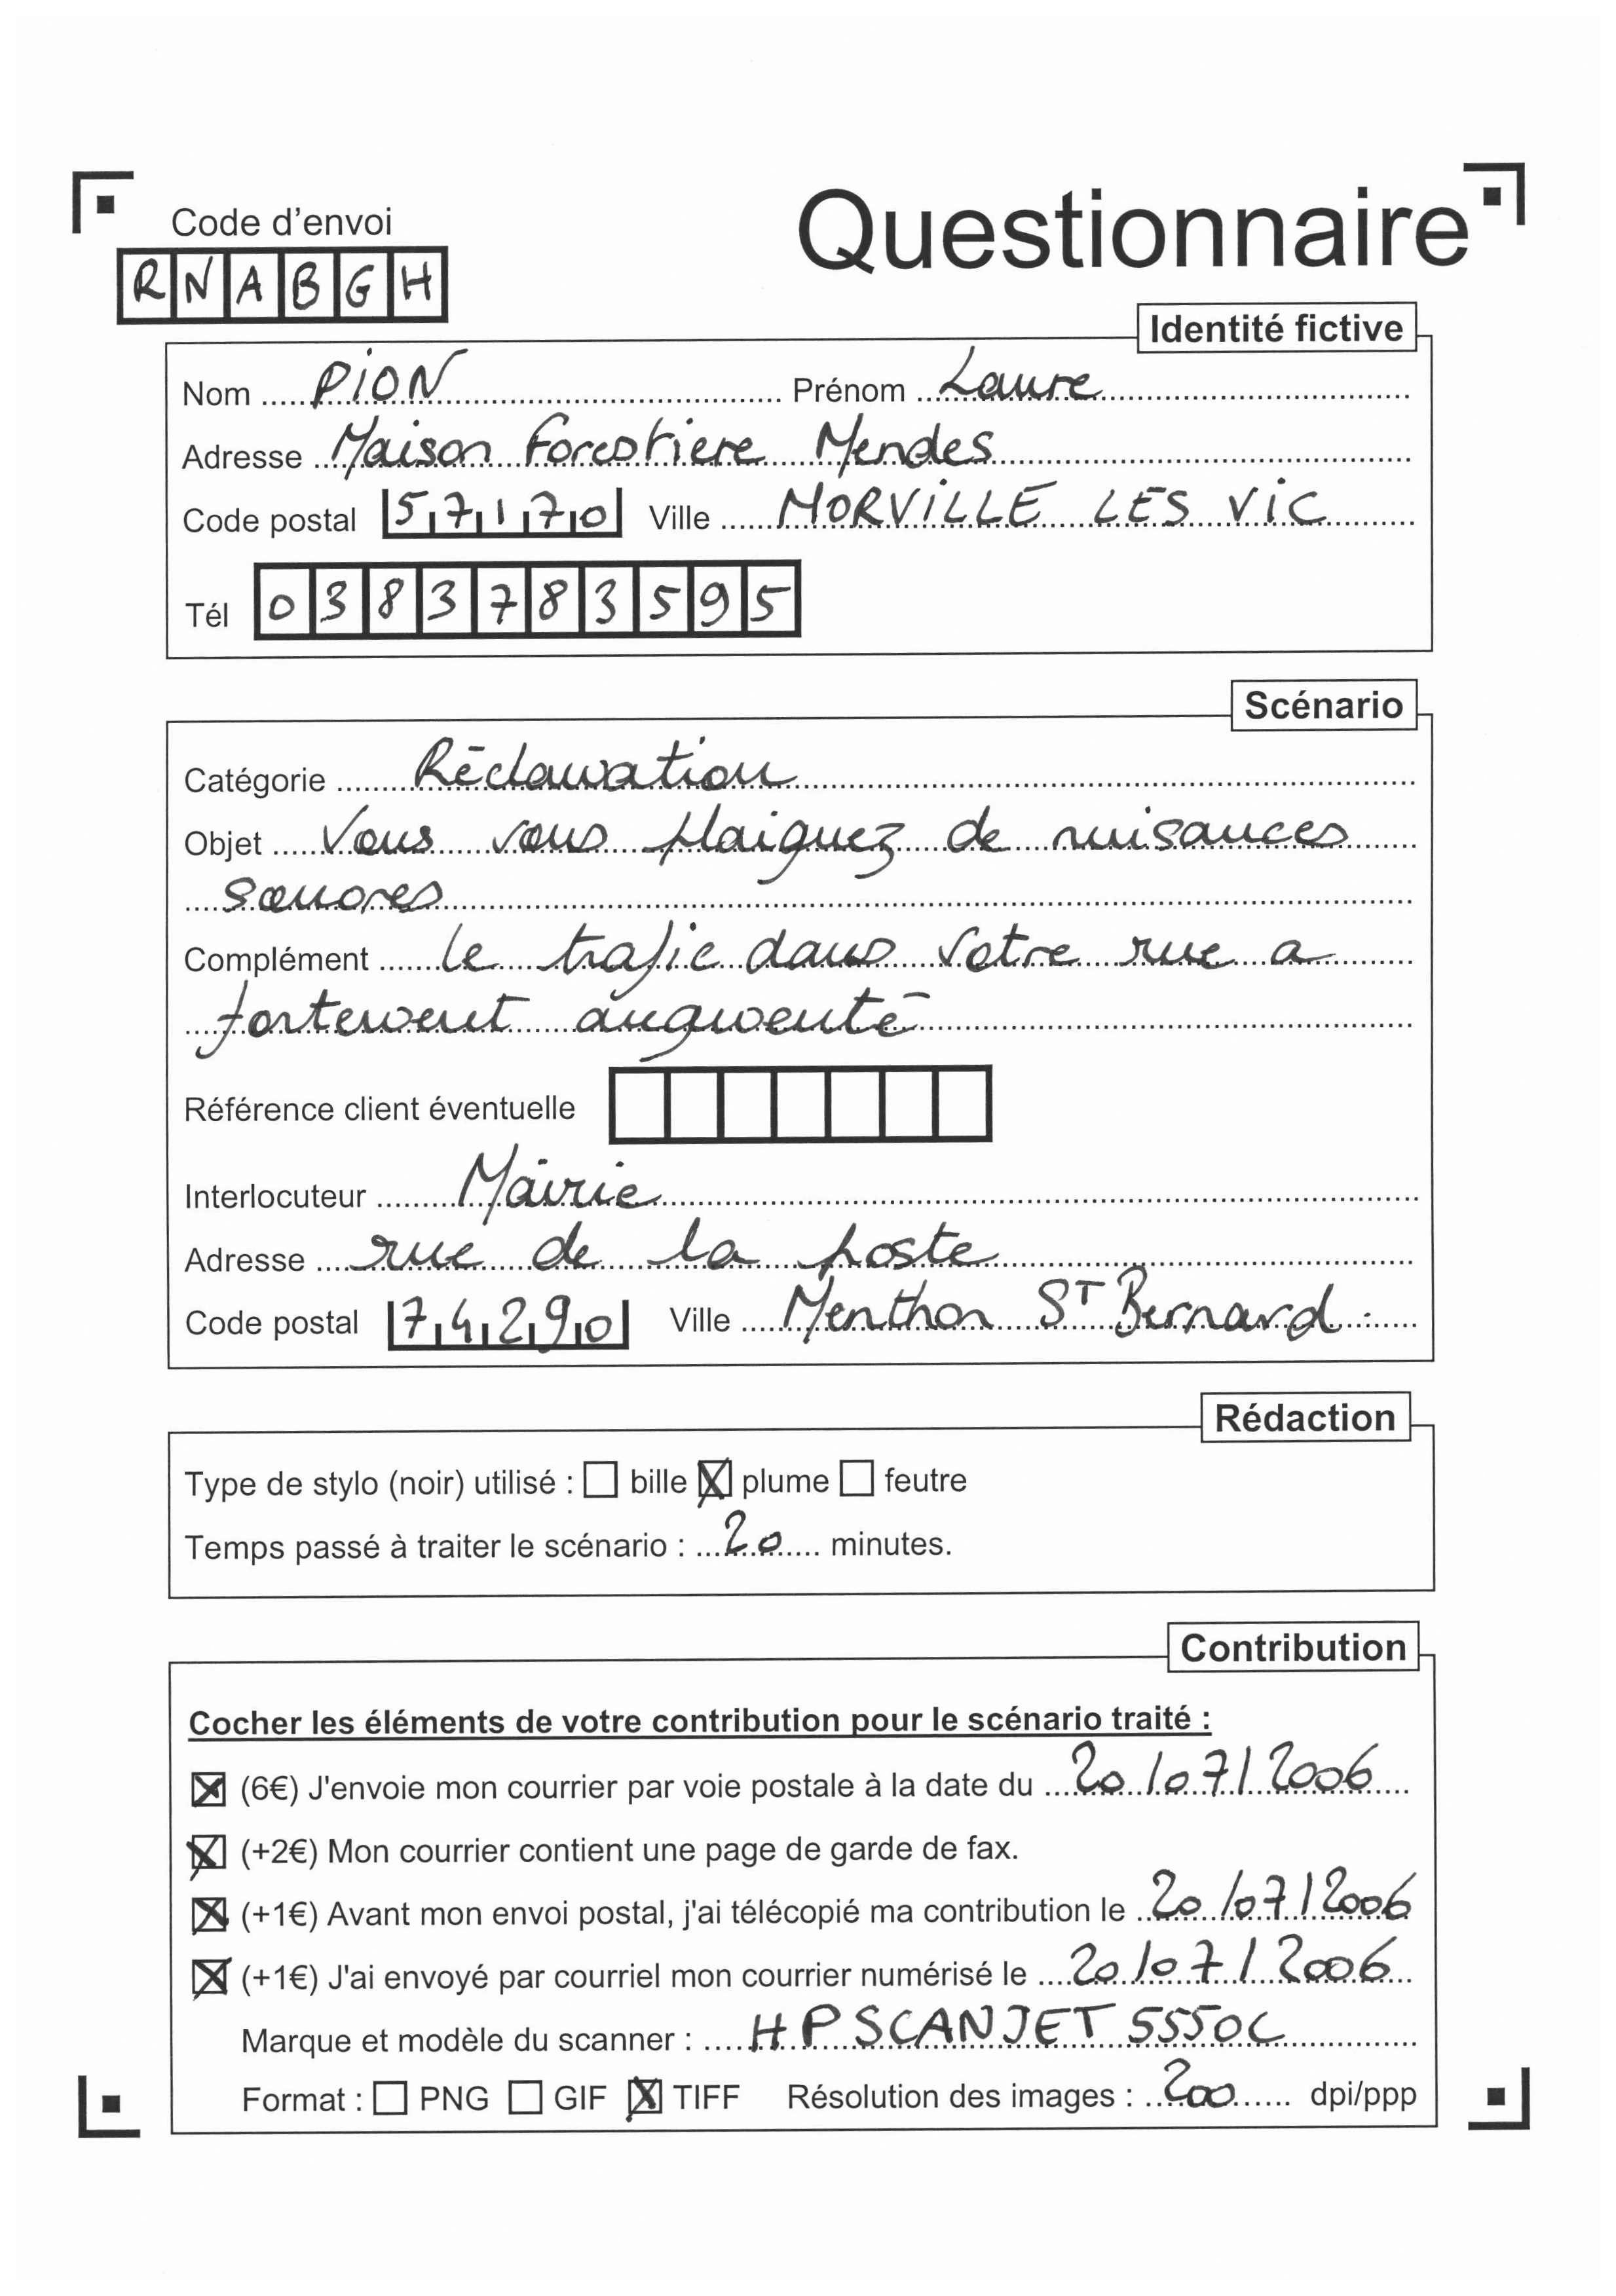 Code d'envoi
Questionnaire
RNABGH
Identité fictive
Nom PiON Prénom Laure
Adresse Maison Forestiere Mendes
Code postal 57170 Ville MORViLLE LES ViC
Tél 0383783595
Scénario
Catégorie Réclamation
Objet Vous vous plaignez de nuisances
sonores
Complément le trafic dans votre rue a
fortement augmenté
Référence client éventuelle
Interlocuteur Mairie
Adresse rue de la poste
Code postal 74290 Ville Menthon ST Bernard.
Rédaction
Type de stylo (noir) utilisé : ☐ bille ☒ plume ☐ feutre
Temps passé à traiter le scénario : 20 minutes.
Contribution
Cocher les éléments de votre contribution pour le scénario traité :
☒ (6€) J'envoie mon courrier par voie postale à la date du 20/07/2006
☒ (+2€) Mon courrier contient une page de garde de fax.
☒ (+1€) Avant mon envoi postal, j'ai télécopié ma contribution le 20/07/2006
☒ (+1€) J'ai envoyé par courriel mon courrier numérisé le 20/07/2006
Marque et modèle du scanner : HP SCANJET 5550C
Format : ☐ PNG ☐ GIF ☒ TIFF Résolution des images : 200 dpi/ppp